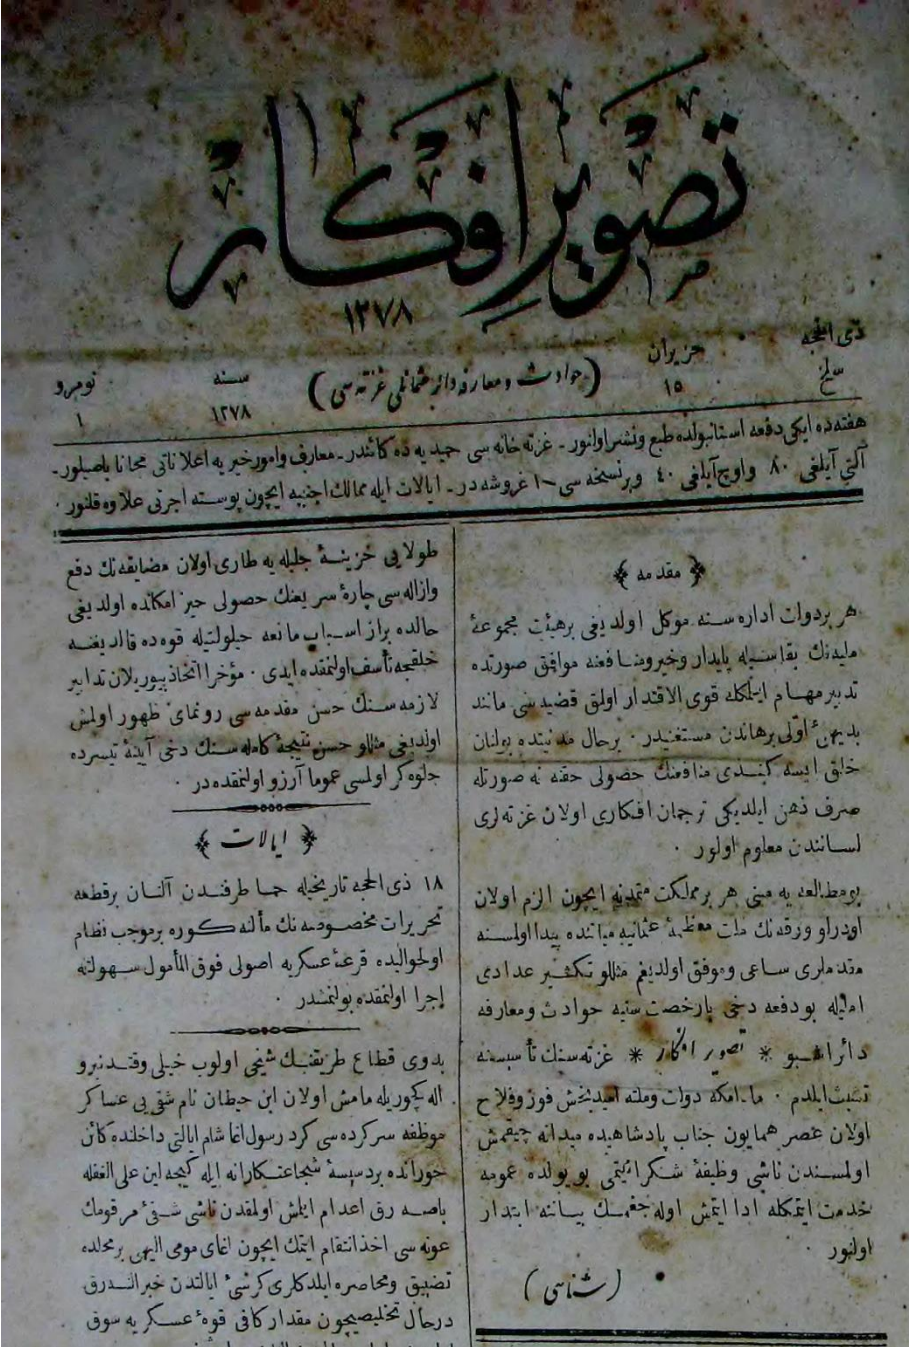 تصوير افكار
١٢٧٨
ذى الحجه
سلخ
حزيران
١٥
(حوادث ومعارفه دائر عثمانلى غزته سى)
سنه
١٢٧٨
نومرو
١
هفته ده ايكى دفعه استانبولده طبع ونشر اولنور ـ غزته خانه سى جيديه ده كائندر ـ معارف وامور خيريه اعلاناتى مجانا ياصيلور ـ
آلتى آيلغى ٨٠ واوچ آيلغى ٤٠ وبر نسخه سى ١٠ غروشه در ـ ايالات ايله ممالك اجنبيه ايچون پوسته اجرتى علاوه قلنور ·
﴿ مقدمه ﴾
هر بر دولت اداره سنه موكل اولديغى بر هيئت مجموعۀ
مليه نك بقاسيله پايدار وخير ومنافعنه موافق صورتده
تدبير مهام ايلمكله قوى الاقتدار اولق قضيه سى مانند
بديهئ اولى برهاندن مستغنيدر · بر حال مدنيتده بولنان
خلق ايسه كندى منافعنك حصولى حقنه نه صورتله
صرف ذهن ايلديكى ترجمان افكارى اولان غزته لرى
لسانندن معلوم اولور ·
بو مطالعه يه مبنى هر بر مملكت متمدنه ايچون الزم اولان
اودرلو ورقه نك ملت معظمۀ عثمانيه مياننده پيدا اولسنه
مقدملرى ساعى وموفق اولديغم مثللو تكثير عدادى
امليله بو دفعه دخى بارخصت سنيه حوادث ومعارفه
دائر اشبو * تصوير افكار * غزته سنك تأسيسنه
تشبث ايلدم · مادامكه دولت وملته اميدبخش فوز وفلاح
اولان عصر همايون جناب پادشاهيده ميدانه چيقمش
اولمسندن ناشى وظيفۀ شكرانيتمى بو يولده عمومه
خدمت ايتمكله ادا ايتمش اوله جغمك بياننه ابتدار
اولنور ·
(شناسى)
طولايى خزينۀ جليله يه طارى اولان مضايقه نك دفع
وازاله سى چارۀ سريعنك حصولى حيز امكانده اولديغى
حالده براز اسباب مانعه حيلولتيله قوه ده قالديغنه
خلقجه تأسف اولنمقده ايدى · مؤخرا اتخاذ بيوريلان تدابير
لازمه سنك حسن مقدمه سى رونماى ظهور اولمش
اولديغى مثللو حسن نتيجۀ كامله سنك دخى آيينۀ تيسرده
جلوه كر اولمسى عموما آرزو اولنمقده در ·
﴿ ايالات ﴾
١٨ ذى الحجه تاريخيله حما طرفندن آلنان بر قطعه
تحريرات مخصوصه نك مألنه كوره بر موجب نظام
اولحواليده قرعۀ عسكريه اصولى فوق المأمول سهولتله
اجرا اولنمقده بولنمشدر ·
بدوى قطاع طريقنك شيخى اولوب خيلى وقتدنبرو
اله كچوريله مامش اولان ابن حيطان نام شقى يى عساكر
موظفه سركرده سى كرد رسول اغا شام ايالتى داخلنده كائن
حورانده بر دسيسۀ شجاعتكارانه ايله كيجه اين على الغفله
باصه رق اعدام ايلمش اولمقدن ناشى شقئ مرقومك
عونه سى اخذ انتقام ايتمك ايچون اغاى مومى اليهى بر محلده
تضييق ومحاصره ايلدكلرى كرسئ ايالتدن خبر النه رق
درحال تخليصيچون مقدار كافى قوۀ عسكريه سوق